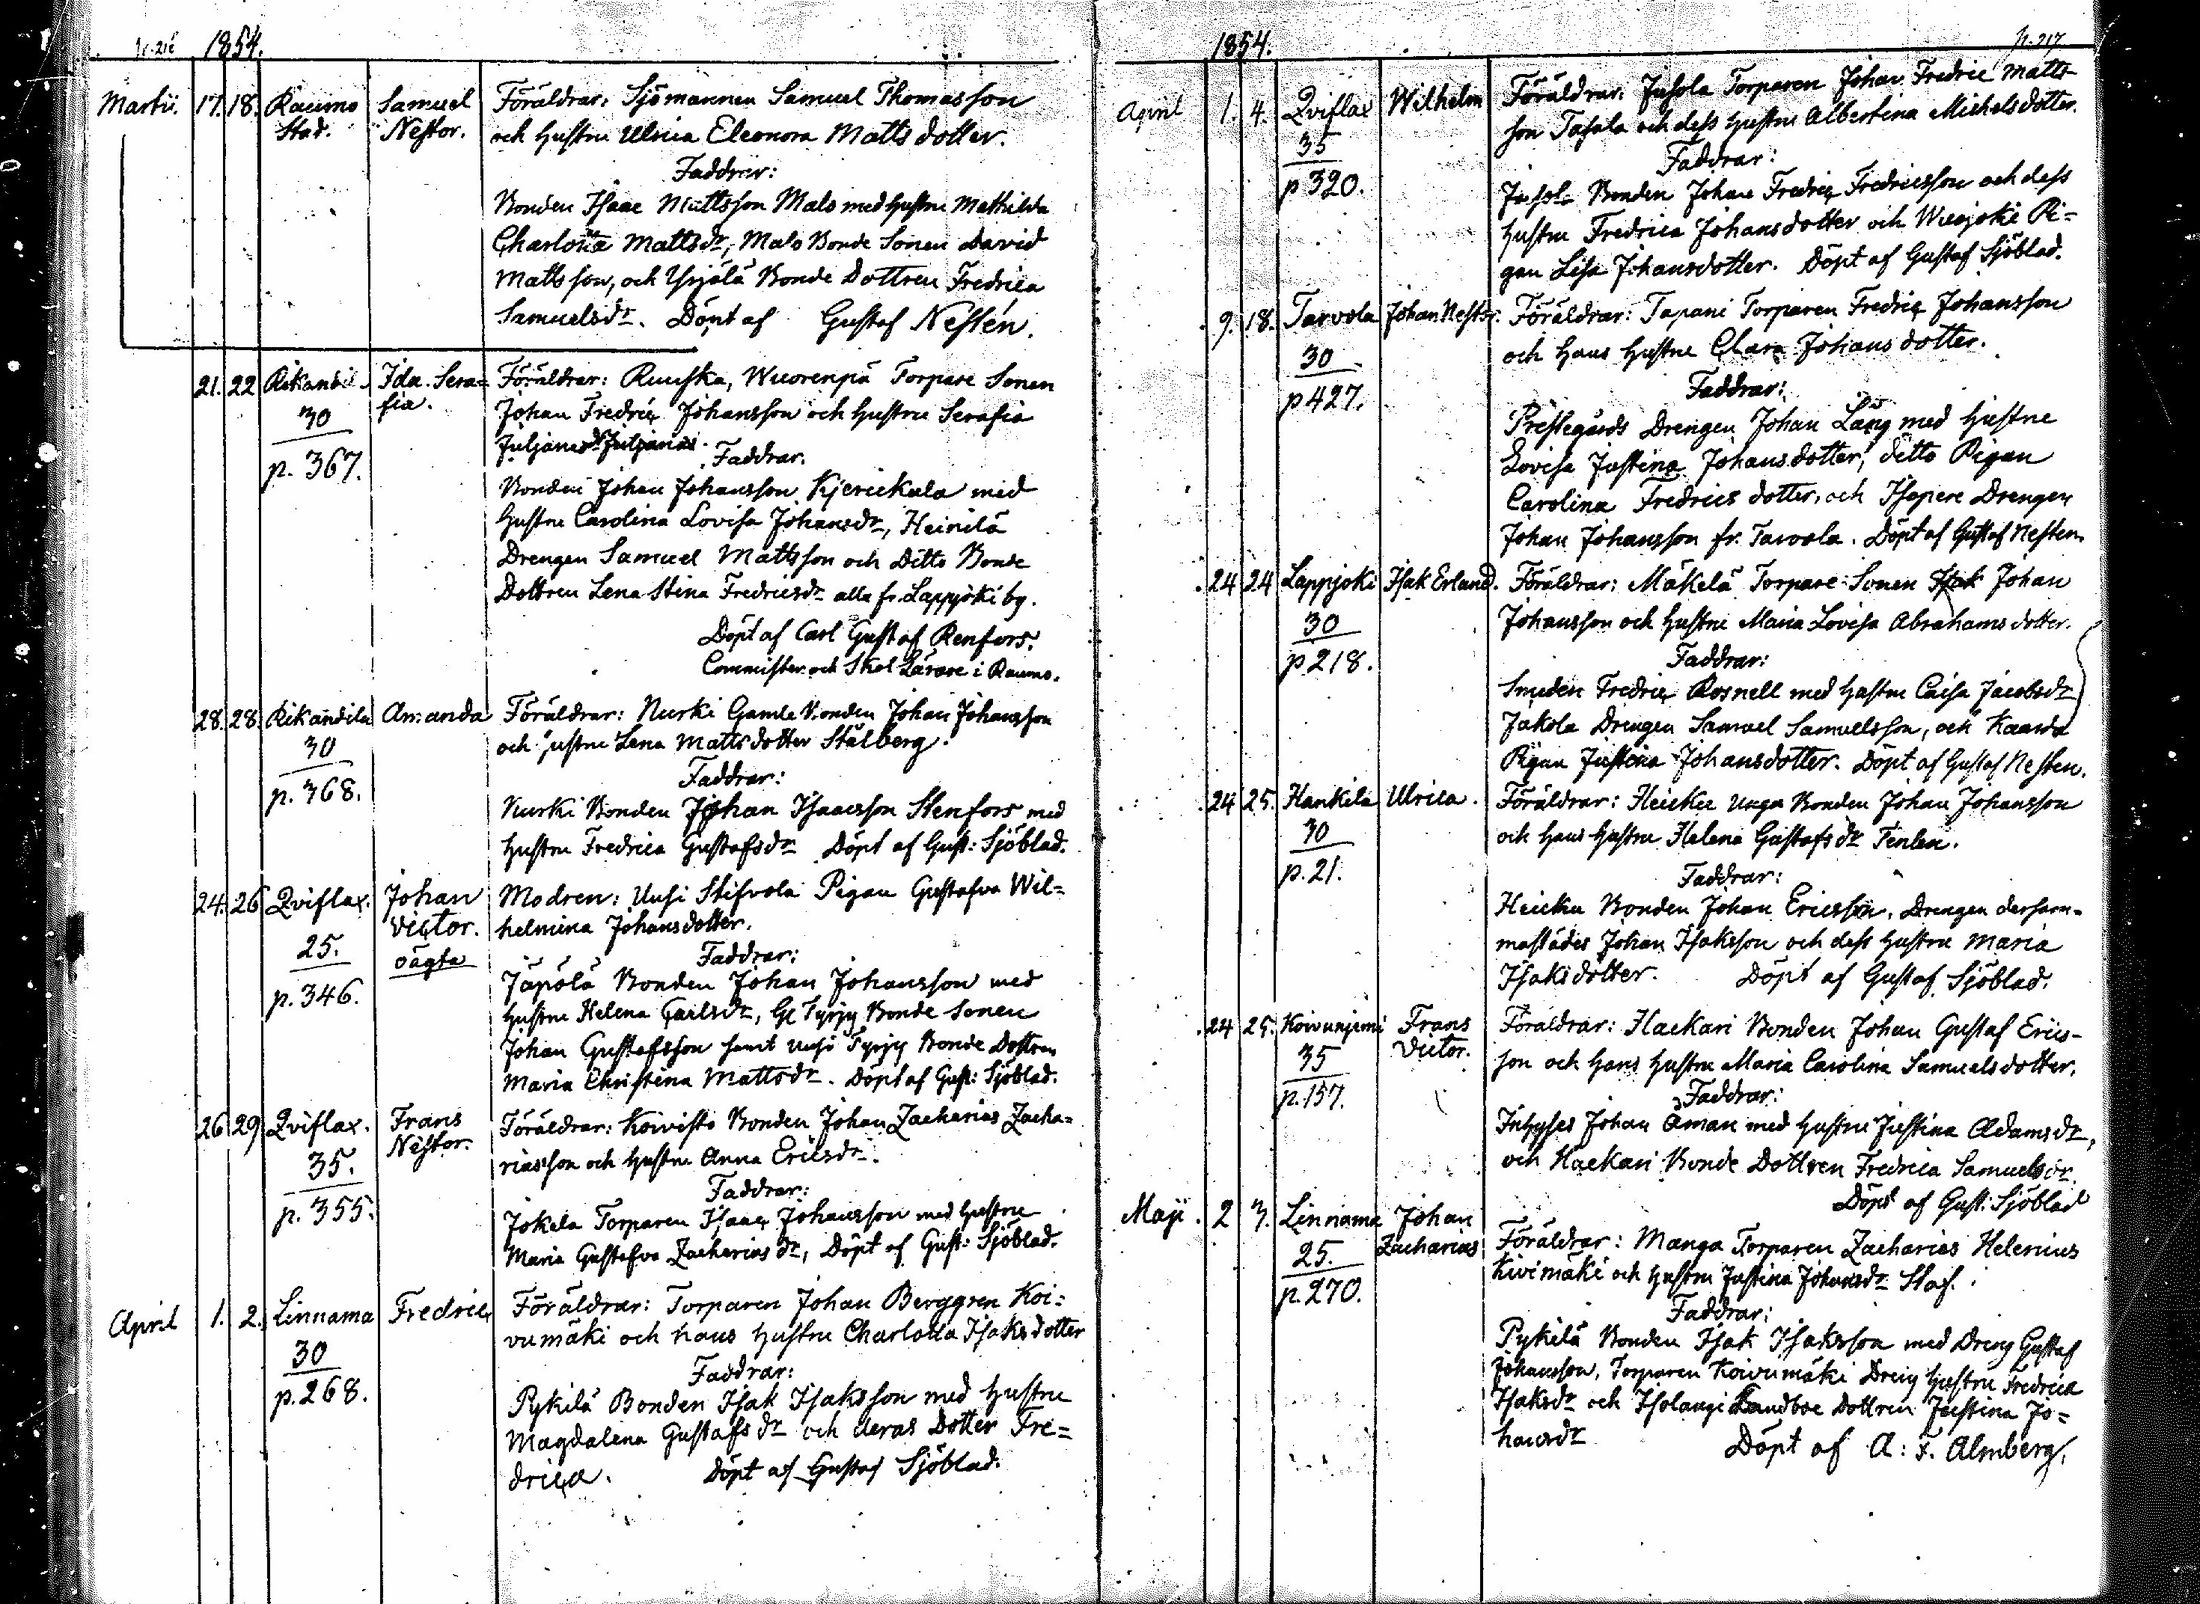 p. 216 1854.
Martii. 17. 18. Raumo Samuel Föräldrar: Sjömannen Samuel Thomasson
Stad. Nestor. och hustru Ulrica Eleonora Mattsdotter.
Faddrar:
Bonden Isaac Mattsson Malo med hustru Mathilda
Charlotta Mattsdr, Malo Bonde Sonen David
Mattsson, och Yrjälä Bonde Dottren Fredrica
Samuelsdr. Döpt af Gustaf Nestén.
21. 22 Rikandil Ida Sera= Föräldrar: Ruuska, Wuorenpä Torpare Sonen
30 fia. Johan Fredric Johansson och hustru Serafia
p. 367. Juljanedr Juljanas. Faddrar.
Bonden Johan Johansson Kjerickala med
hustru Carolina Lovisa Johansdr, Heinilä
Drengen Samuel Mattsson och Ditto Bonde
Dottren Lena Stina Fredricsdr alla fr. Lappjoki by.
Döpt af Carl Gustaf Renfors.
Commister och Skol Lärare i Raumo.
28. 28. Rikandila Amanda Föräldrar: Nurki Gamle Bonden Johan Johansson
30 och hustru Lena Mattsdotter Stålberg.
p. 368. Faddrar:
Nurki Bonden Johan Isaacsson Stenfors med
hustru Fredrica Gustafsdr Döpt af Gust: Sjöblad.
24. 26 Qviflax. Johan Modren: Uusi Stifvola Pigan Gustafva Wil=
25. Victor. helmina Johansdotter.
p. 346. oägta Faddrar:
Jäpölä Bonden Johan Johansson med
hustru Helena Carlsdr, Gl Tyrjy Bonde Sonen
Johan Gustafsson samt Uusi Tyrjy Bonde Dottren
Maria Christina Mattsdr. Döpt af Gust: Sjöblad.
26 29 Qviflax. Frans Föräldrar: Koivisto Bonden Johan Zacharias Zacha=
35. Nestor. riasson och hustru Anna Ericsdr.
p. 355. Faddrar:
Jokela Torparen Isaac Johansson med hustru
Maria Gustafva Zachariasdr, Döpt af Gust: Sjöblad.
April 1. 2. Linnama Fredric Föräldrar: Torparen Johan Berggren Koi=
30 vumäki och hans hustru Charlotta Isaksdotter
p. 268. Faddrar:
Pykilä Bonden Isak Isaksson med hustru
Magdalena Gustafsdr och deras Dotter Fre=
drica. Döpt af Gustaf Sjöblad.
1854. p. 217
April 1. 4. Qviflax Wilhelm Föräldrar: Jusola Torparen Johan Fredric Matts
35 son Tafala och dess hustru Albertina Michelsdotter.
p 320. Faddrar:
Bonden Johan Fredric Fredricsson och dess
hustru Fredrica Johansdotter och Wuojoki Pi=
gan Lisa Johansdotter. Döpt af Gustaf Sjöblad.
9. 18. Tarvola Johan Nestor. Föräldrar: Tapani Torparen Fredric Johansson
30 och hans hustru Clara Johansdotter.
p 427. Faddrar:
Prestegårds Drengen Johan Lång med hustru
Lovisa Justina Johansdotter, ditto Pigan
Carolina Fredricsdotter, och Isopere Drengen
Johan Johansson fr. Tarvola. Döpt af Gustaf Nesten.
24 24 Lappjoki Isak Erland. Föräldrar: Mäkelä Torpare Sonen Isak Johan
30 Johansson och hustru Maria Lovisa Abrahamsdotter.
p 218. Faddrar:
Smeden Fredric Rosnell med hustru Caisa Jacobsdr
Jakola Drengen Samuel Samuelsson, och Kaarda
Pigan Justina Johansdotter. Döpt af Gustaf Nesten.
24 25. Hankila Ulrica. Föräldrar: Heicku Unga Bonden Johan Johansson
30 och hans hustru Helena Gustafsdr Tenlen.
p. 21. Faddrar:
Heicku Bonden Johan Ericsson, Drengen dersam=
mastädes Johan Isaksson och dess hustru Maria
Isaksdotter. Döpt af Gustaf Sjöblad.
24 25. Koivunjemi Frans Föräldrar: Haekari Bonden Johan Gustaf Erics=
35 Victor. son och hans hustru Maria Carolina Samuelsdotter.
p. 157. Faddrar:
Inhyses Johan Öman med hustru Justina Adamsdr,
och Haekari Bonde Dottren Fredrica Samuelsdr.
Döpt af Gust: Sjöblad
Maji. 2 3. Linnama Johan
25. Zacharias Föräldrar: Manga Torparen Zacharias Helenius
p. 270. Kivimäki och hustru Justina Johansdr Staf.
Faddrar:
Pykilä Bonden Isak Isaksson med Dreng Gustaf
Johansson, Torparen Koivumäki Dreng hustru Fredrica
Isaksdr och Isolangi Landboe Dottren Justina Jo=
hansdr Döpt af A: F. Almberg.